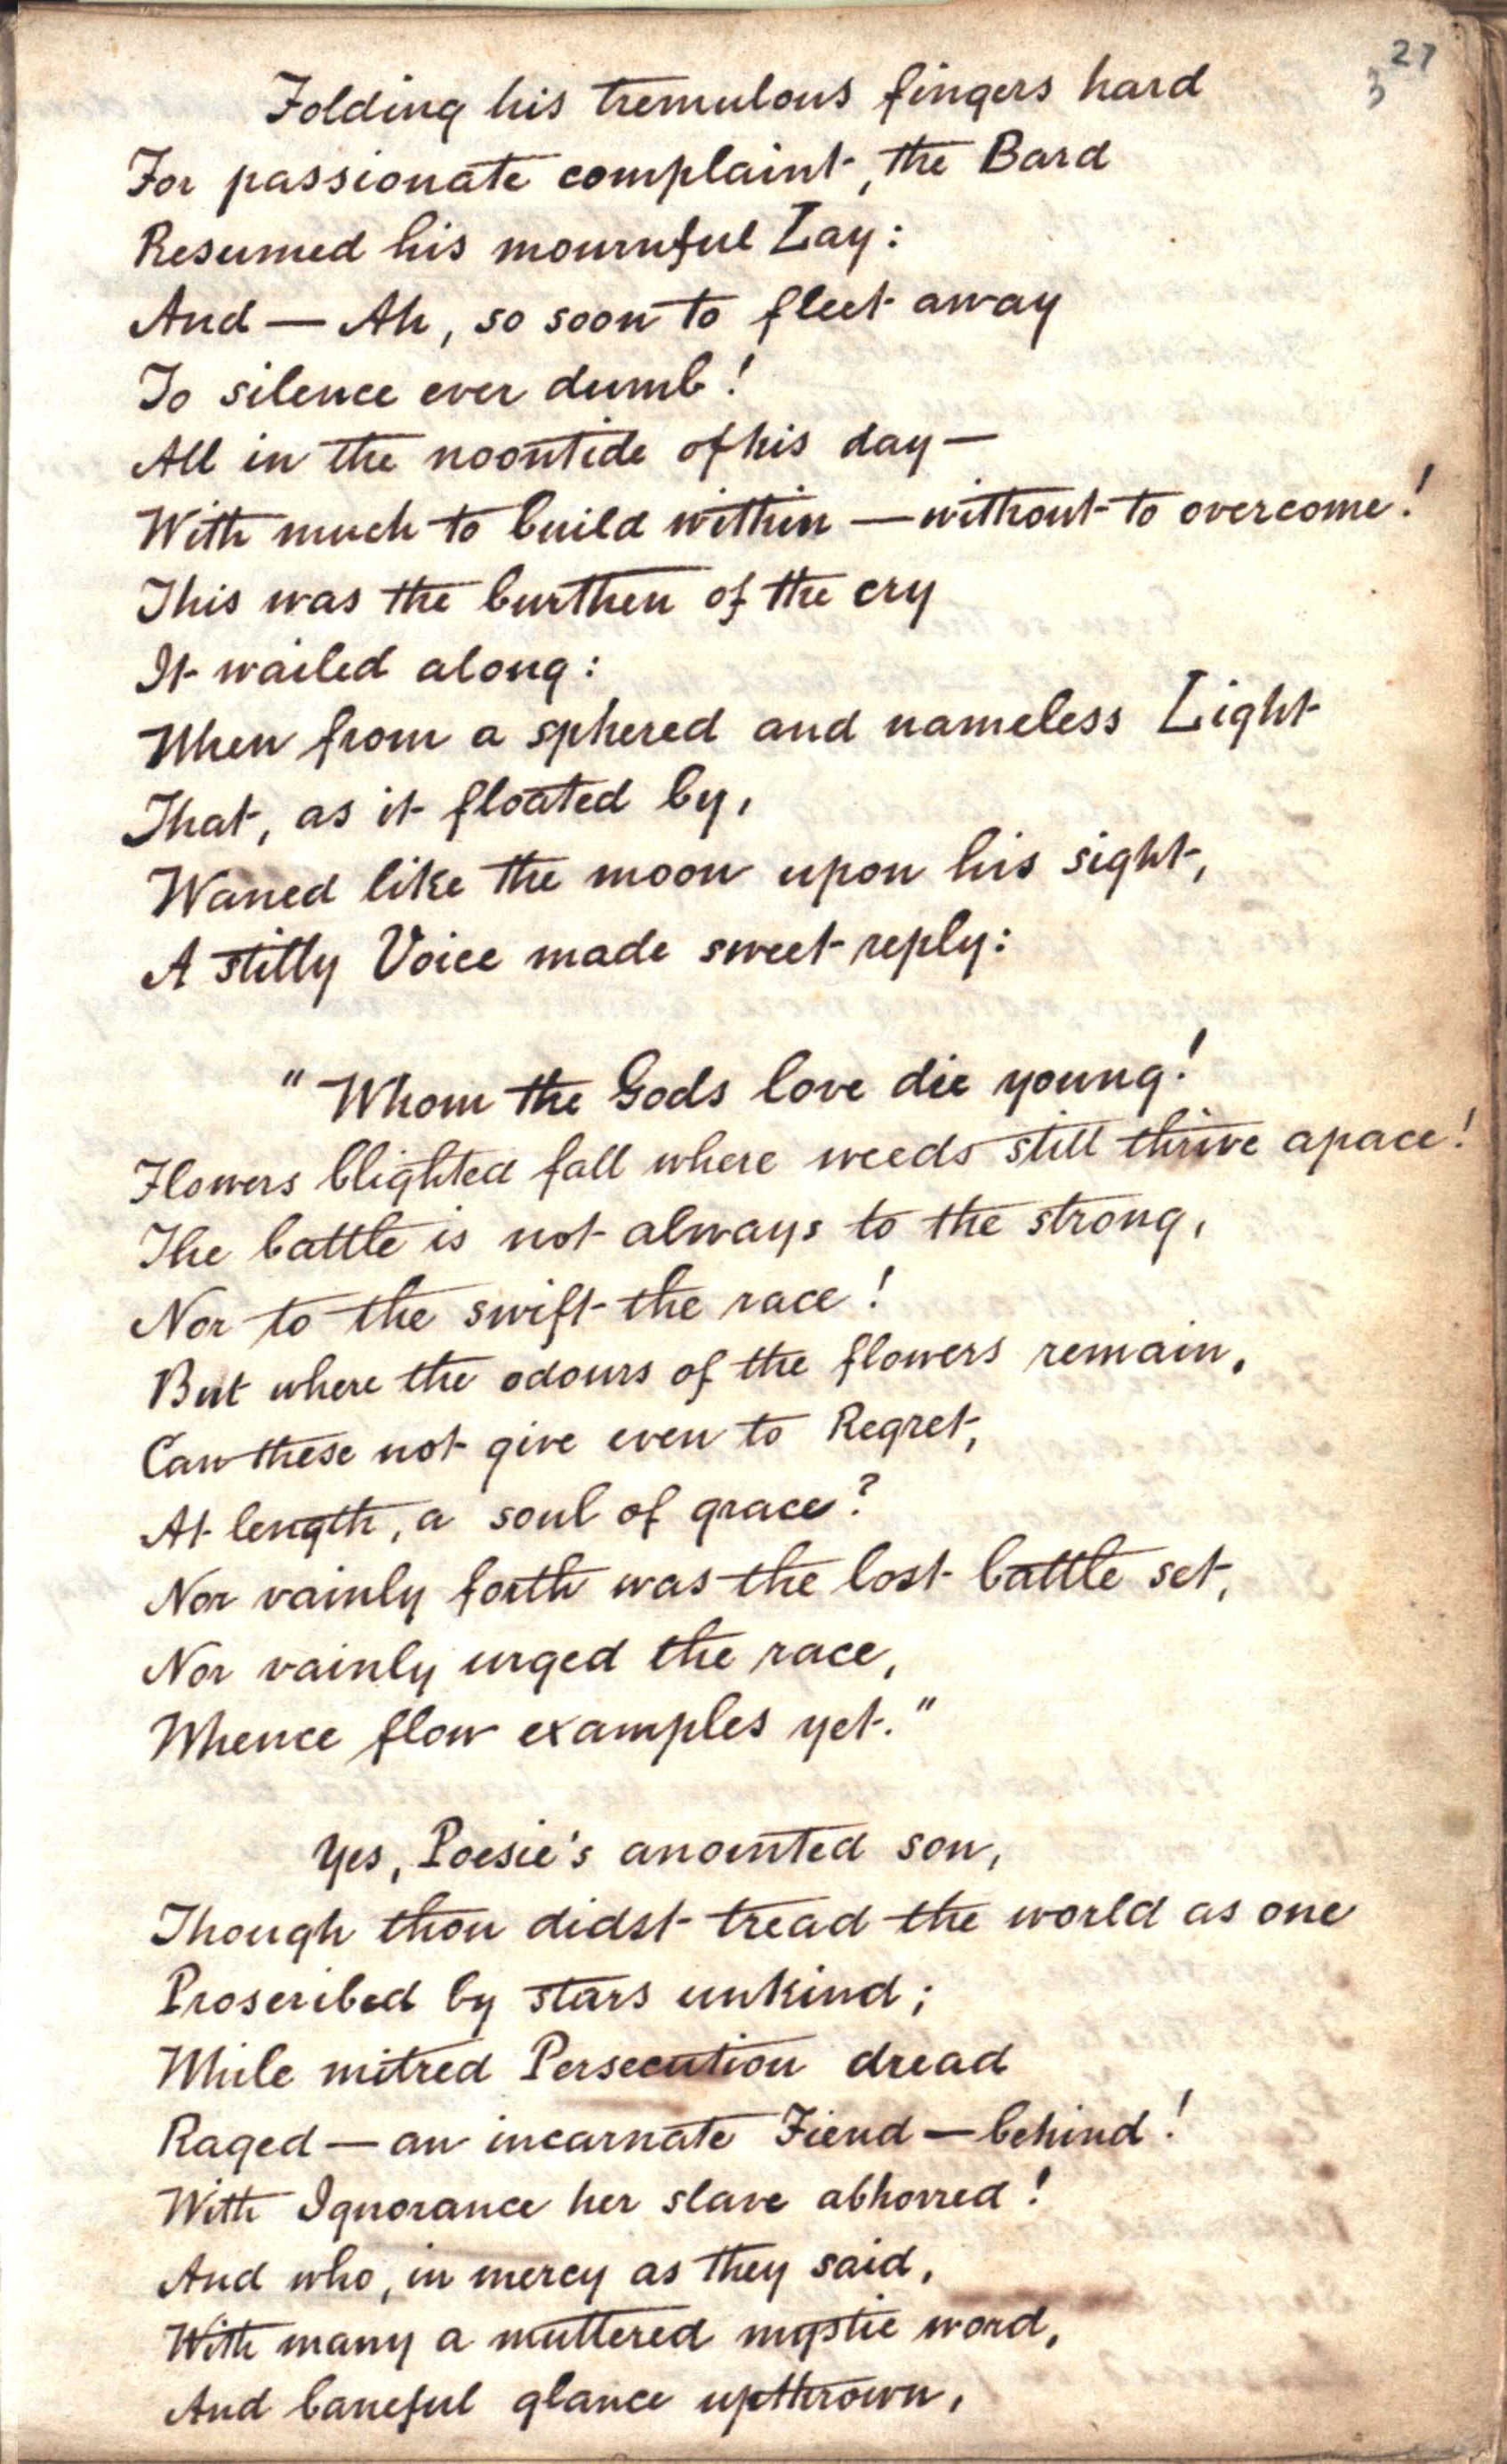 27
3
Folding his tremulous fingers hard
For passionate complaint, the Bard
Resumed his mournful Lay:
And — Ah, so soon to fleet away
To silence ever dumb!
All in the noontide of his day —
With much to build within — without to overcome!
This was the burthen of the cry
It wailed along:
When from a sphered and nameless Light
That, as it floated by,
Waned like the moon upon his sight,
A stilly Voice made sweet reply:
"Whom the Gods love die young!
Flowers blighted fall where weeds still thrive apace!
The battle is not always to the strong,
Nor to the swift the race!
But where the odours of the flowers remain,
Can these not give even to Regret,
At length, a soul of grace?
Nor vainly forth was the lost battle set,
Nor vainly urged the race,
Whence flow examples yet."
Yes, Poesie's anointed son,
Though thou didst tread the world as one
Proscribed by stars unkind;
While mitred Persecution dread
Raged — an incarnate Fiend — behind!
With Ignorance her slave abhorred!
And who, in mercy as they said,
With many a muttered mystic word,
And baneful glance upthrown,